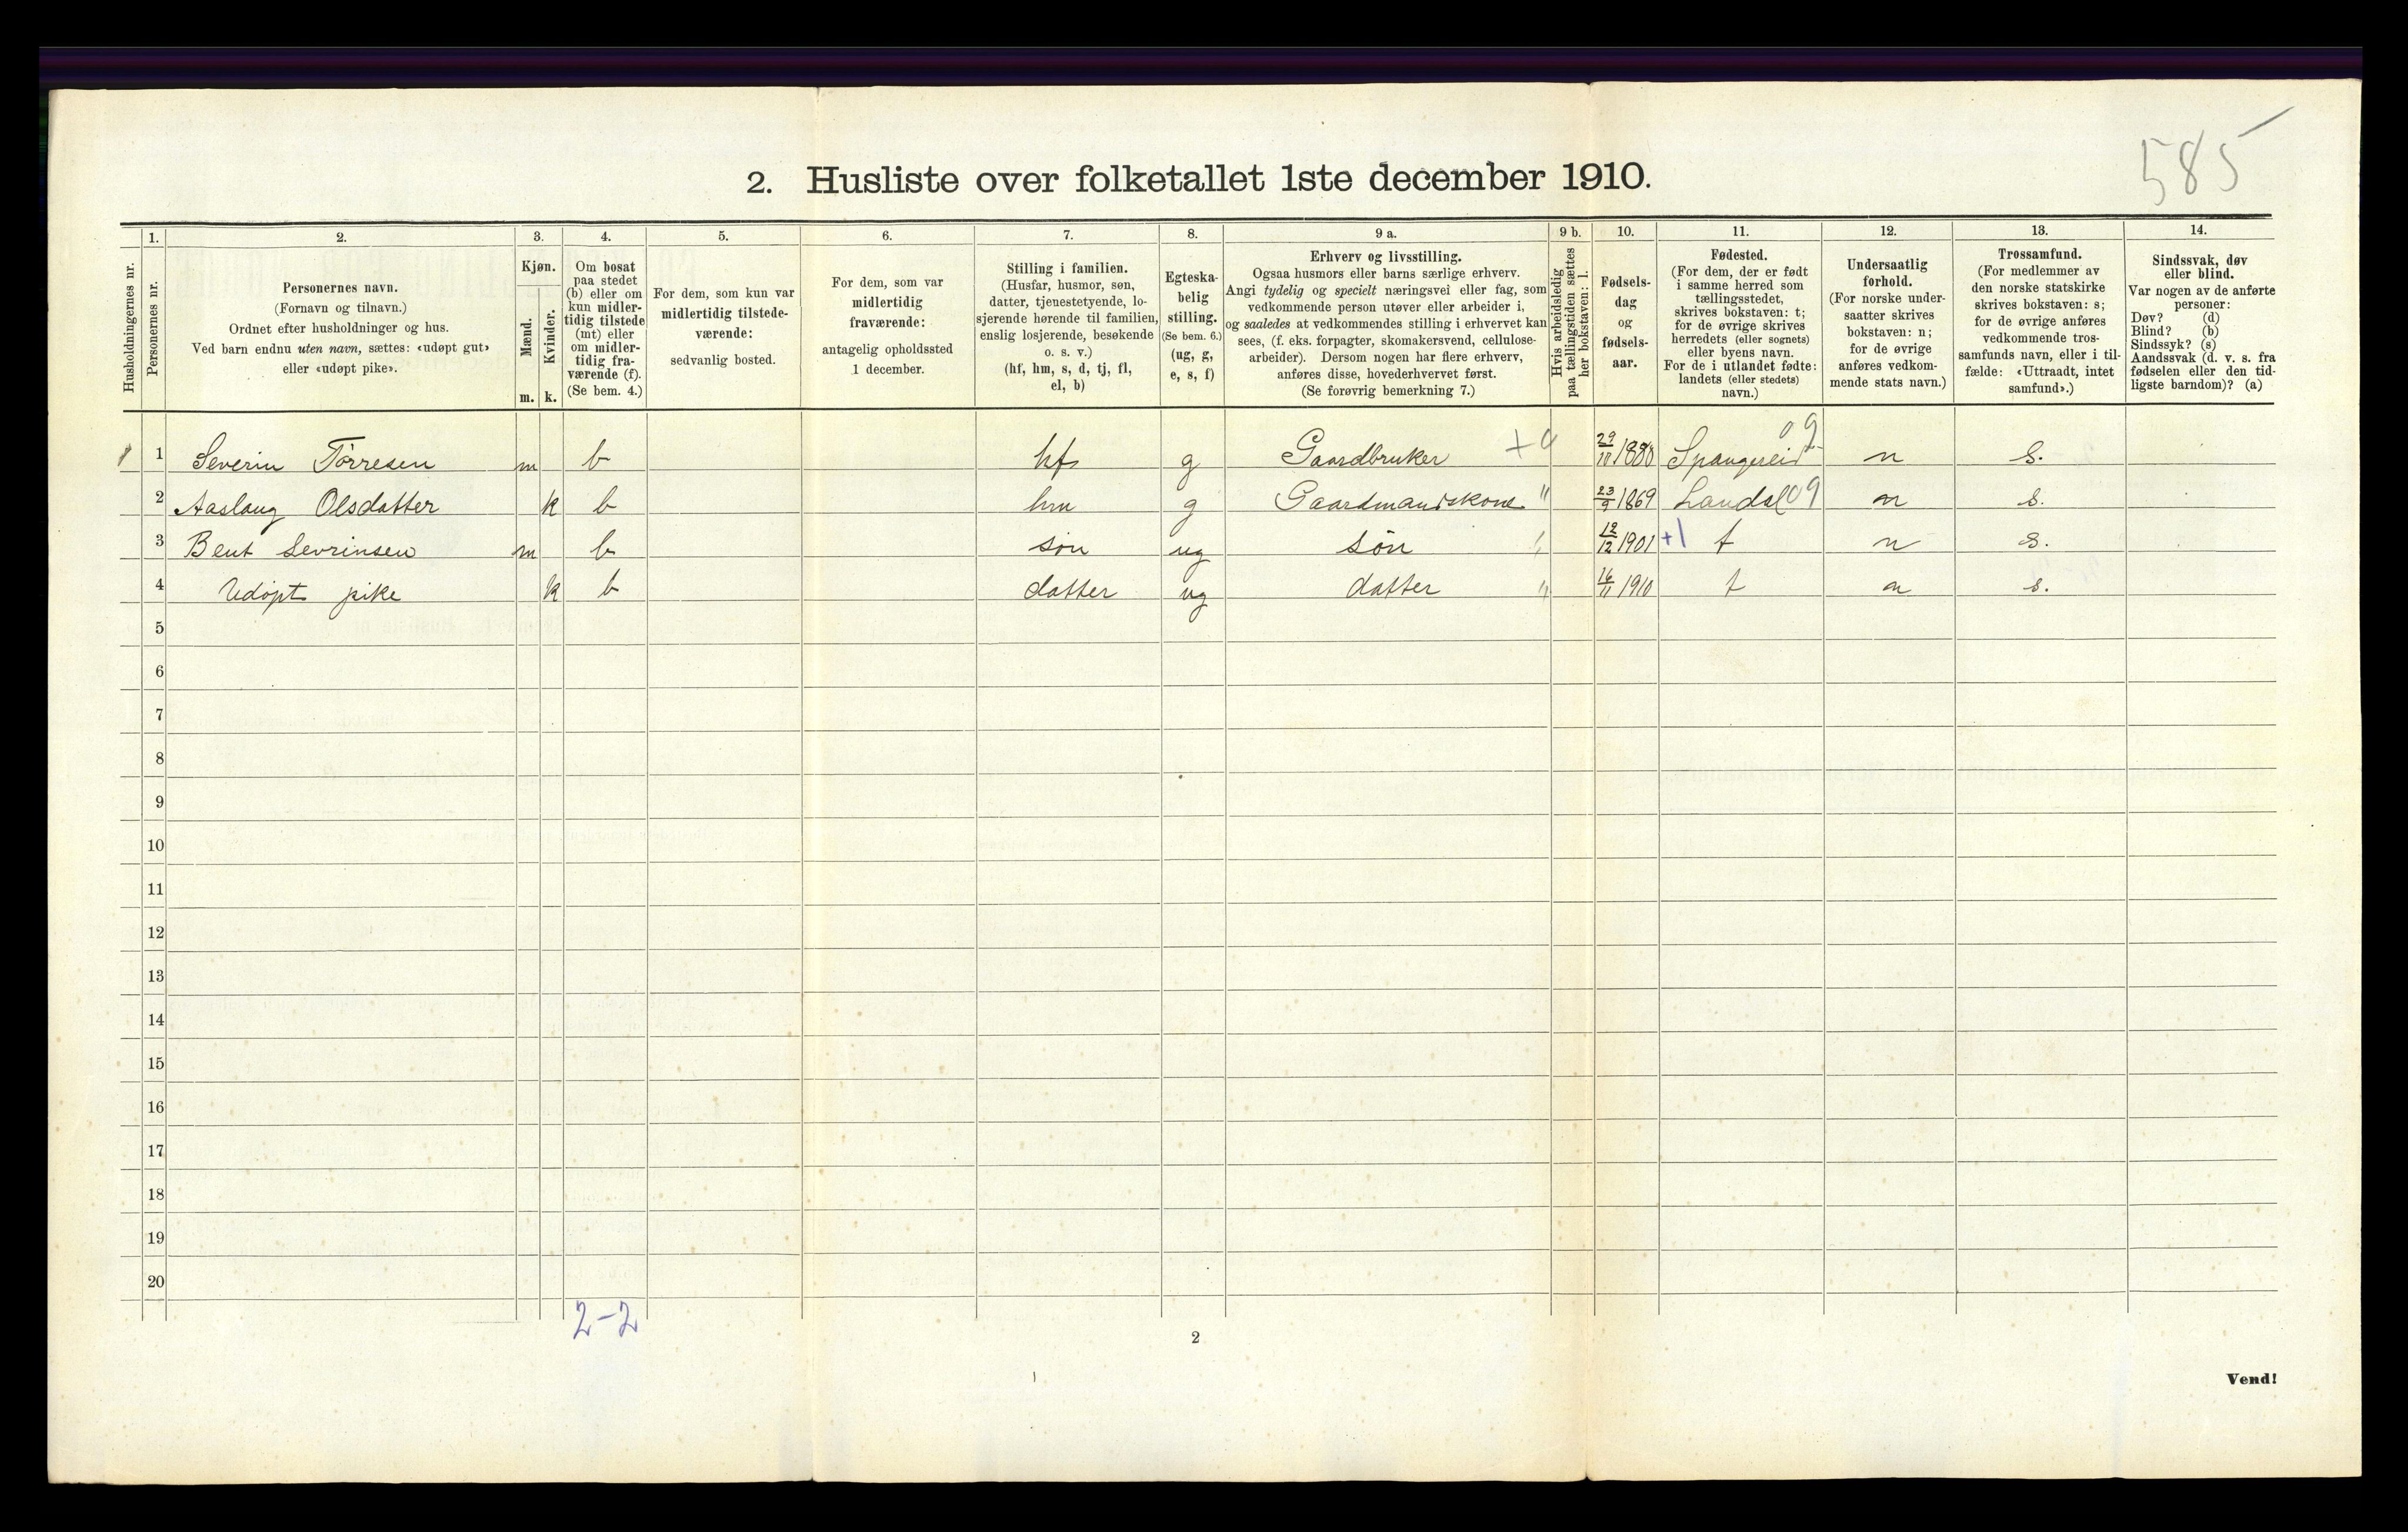 585
2. Husliste over folketallet 1ste december 1910.
Husholdningernes nr.
1. Personernes nr.
2. Personernes navn.
(Fornavn og tilnavn.)
Ordnet efter husholdninger og hus.
Ved barn endnu uten navn, sættes: «udøpt gut»
eller «udøpt pike».
3. Kjøn.
Mænd. Kvinder.
m. k.
4. Om bosat
paa stedet
(b) eller om
kun midler-
tidig tilstede
(mt) eller
om midler-
tidig fra-
værende (f).
(Se bem. 4.)
5. For dem, som kun var
midlertidig tilstede-
værende:
sedvanlig bosted.
6. For dem, som var
midlertidig
fraværende:
antagelig opholdssted
1 december.
7. Stilling i familien.
(Husfar, husmor, søn,
datter, tjenestetyende, lo-
sjerende hørende til familien,
enslig losjerende, besøkende
o. s. v.)
(hf, hm, s, d, tj, fl,
el, b)
8. Egteska-
belig
stilling.
(Se bem. 6.)
(ug, g,
e, s, f)
9 a. Erhverv og livsstilling.
Ogsaa husmors eller barns særlige erhverv.
Angi tydelig og specielt næringsvei eller fag, som
vedkommende person utøver eller arbeider i,
og saaledes at vedkommendes stilling i erhvervet kan
sees, (f. eks. forpagter, skomakersvend, cellulose-
arbeider). Dersom nogen har flere erhverv,
anføres disse, hovederhvervet først.
(Se forøvrig bemerkning 7.)
9 b. Hvis arbeidsledig
paa tællingstiden sættes
her bokstaven: l.
10. Fødsels-
dag
og
fødsels-
aar.
11. Fødested.
(For dem, der er født
i samme herred som
tællingsstedet,
skrives bokstaven: t;
for de øvrige skrives
herredets (eller sognets)
eller byens navn.
For de i utlandet fødte:
landets (eller stedets)
navn.)
12. Undersaatlig
forhold.
(For norske under-
saatter skrives
bokstaven: n;
for de øvrige
anføres vedkom-
mende stats navn.)
13. Trossamfund.
(For medlemmer av
den norske statskirke
skrives bokstaven: s;
for de øvrige anføres
vedkommende tros-
samfunds navn, eller i til-
fælde: «Uttraadt, intet
samfund».)
14. Sindssvak, døv
eller blind.
Var nogen av de anførte
personer:
Døv? (d)
Blind? (b)
Sindssyk? (s)
Aandssvak (d. v. s. fra
fødselen eller den tid-
ligste barndom)? (a)
1 1 Severin Tørresen m b hf g Gaardbruker 29/10 1880 Spangereid 09 n s.
2 Aaslaug Olsdatter k b hm g Gaardmandskone " 23/9 1869 Landal 09 n s.
3 Bent Sevrinsen m b søn ug søn " 12/12 1901 +1 t n s.
4 Udøpt pike k b datter ug datter " 16/11 1910 t n s.
5
6
7
8
9
10
11
12
13
14
15
16
17
18
19
20
2-2
2
Vend!